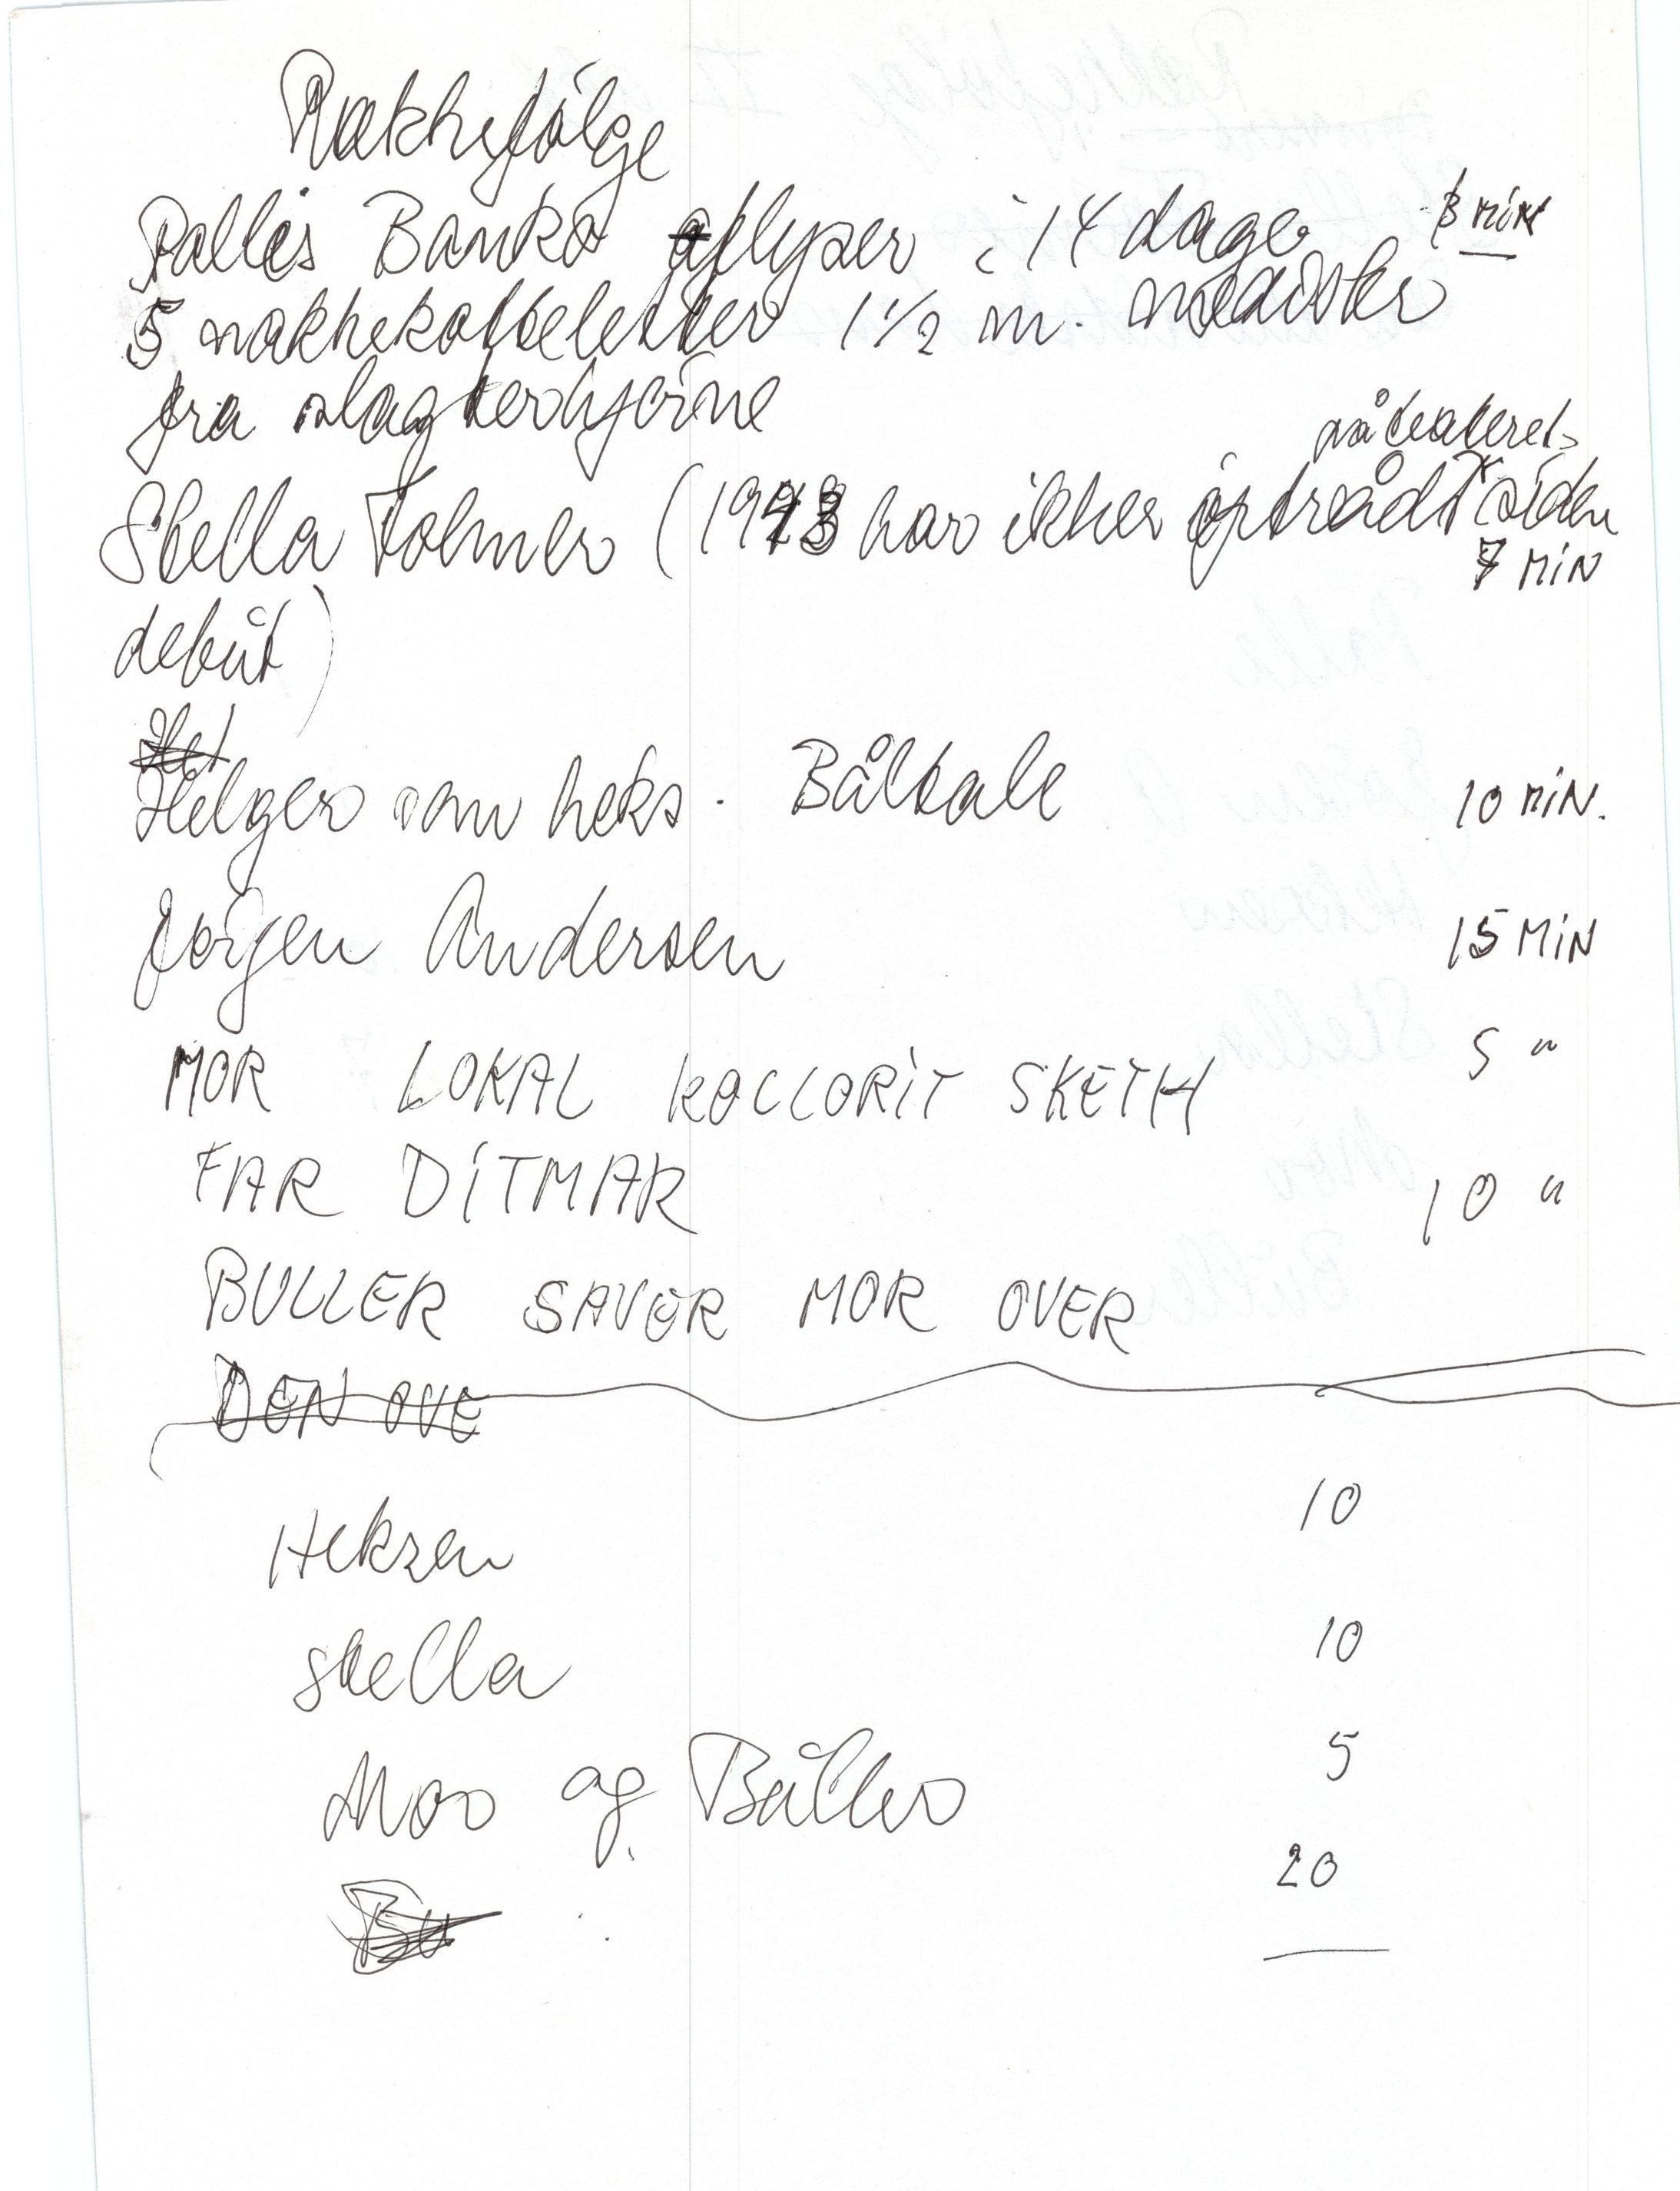 Rakkefølge
Palles Banko aflyser i 14 dage 3 min
5 nakkekotteletter 1½ m. medister
fra slagterhjørne
på teateret
Stella Folmer (1943 har ikker optrådt siden
7 MIN
debut)
Helger som heks. Båltale 10 MIN.
Jørgen Andersen 15 MIN
MOR LOKAL KOLLORIT SKETH 5 "
FAR DITMAR 10 "
BULLER SAVER MOR OVER
DEN OVE
Heksen 10
Stella 10
Mor og Buller 5
20
Bu